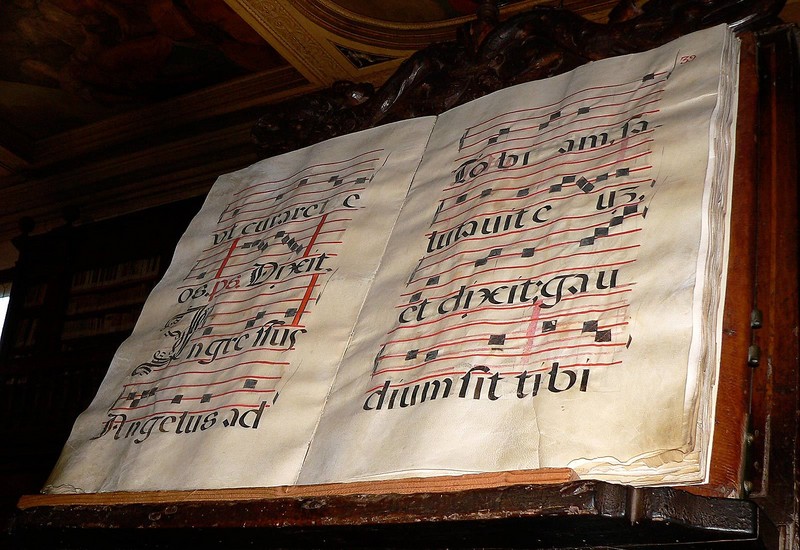 ut curaret e
os. ps. Dixit.
Ingressus
Angelus ad
39
Tobi am, sa
lutavit e uz.
et dixit; gau
dium sit tibi